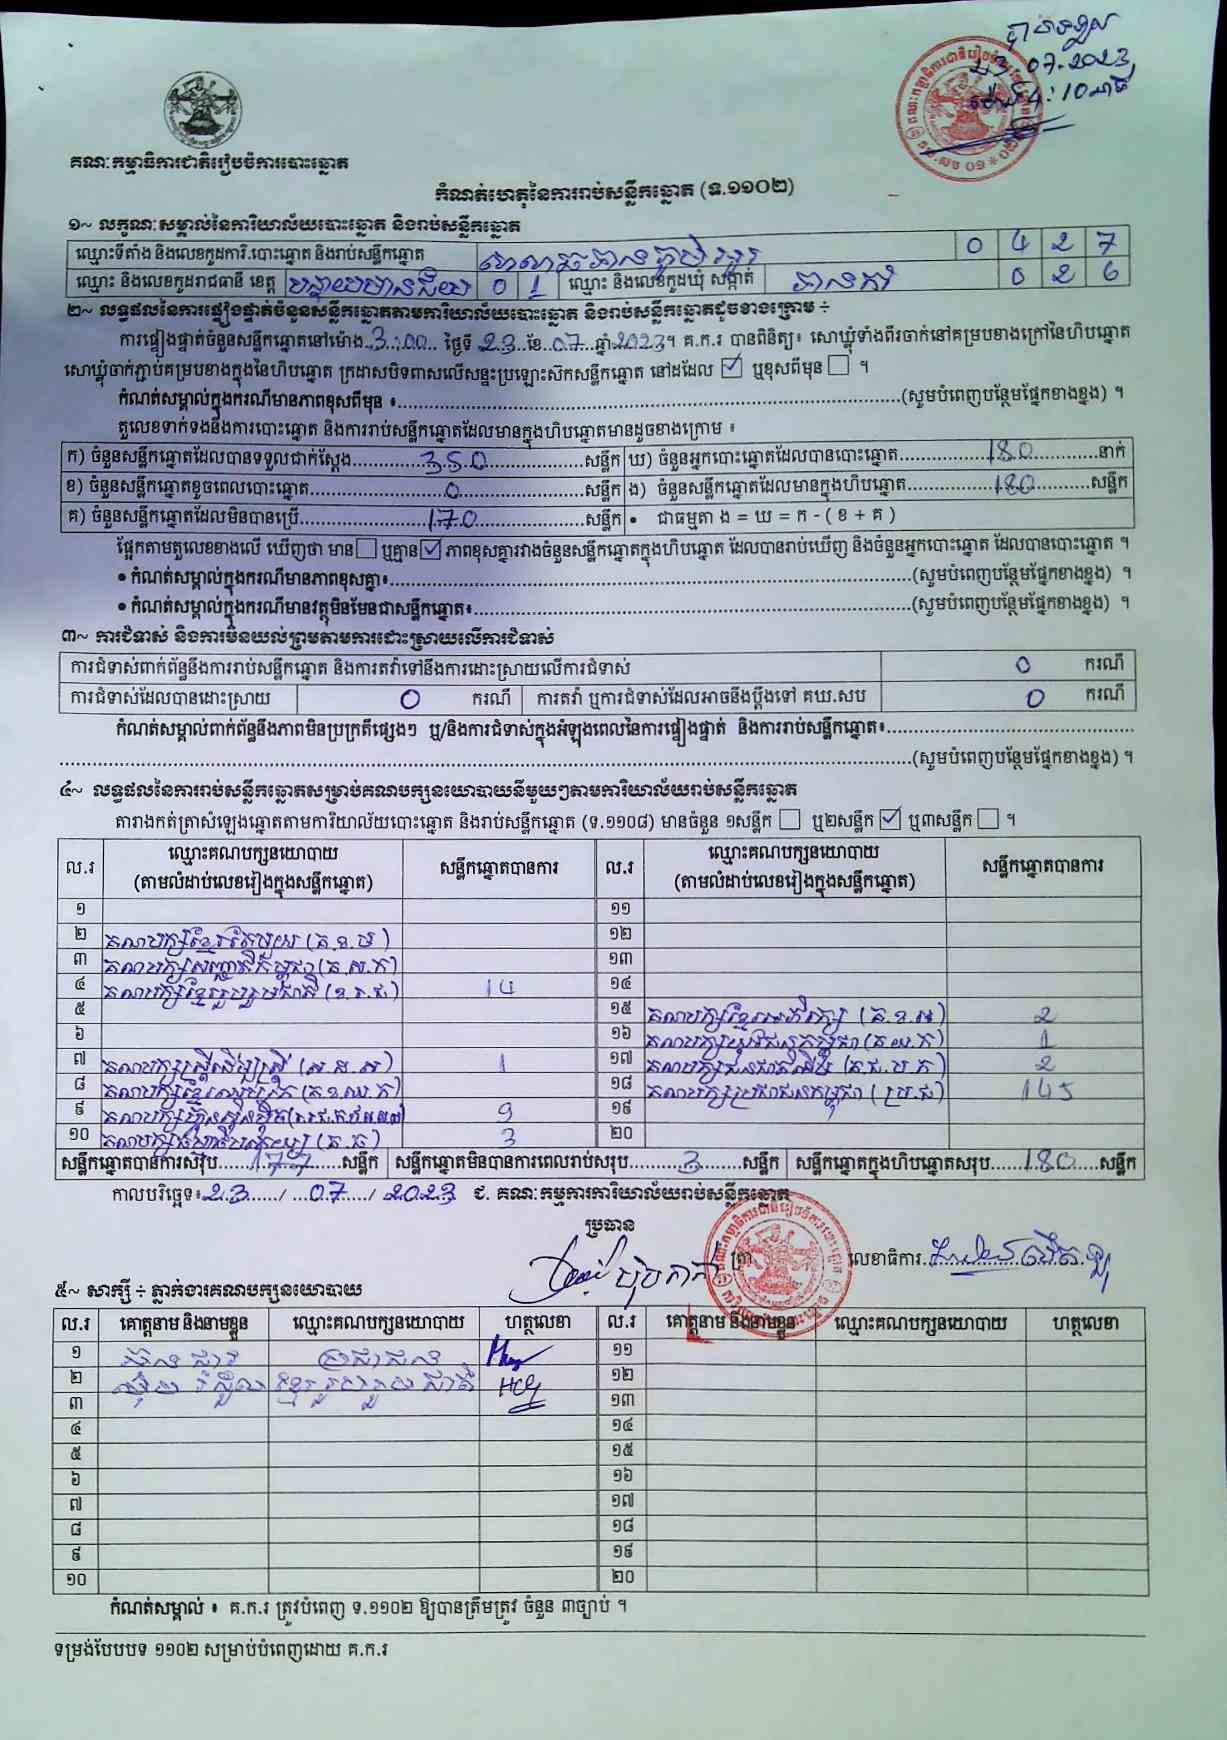 23 07.2023
4:10
គណៈកម្មាធិការជាតិរៀបចំការបោះឆ្នោត
កំណត់ហេតុនៃការរាប់សន្លឹកឆ្នោត (ទ.១១០២)
១~ លក្ខណៈសម្គាល់នៃការិយាល័យបោះឆ្នោត និងរាប់សន្លឹកឆ្នោត
ឈ្មោះទីតាំង និងលេខកូដការិ.បោះឆ្នោត និងរាប់សន្លឹកឆ្នោត 0 4 2 7
ឈ្មោះ និងលេខកូដរាជធានី ខេត្ត បន្ទាយមានជ័យ 0 1 ឈ្មោះ និងលេខកូដឃុំ សង្កាត់ 0 2 6
២~ លទ្ធផលនៃការផ្ទៀងផ្ទាត់ចំនួនសន្លឹកឆ្នោតតាមការិយាល័យបោះឆ្នោត និងរាប់សន្លឹកឆ្នោតដូចខាងក្រោម ÷
ការផ្ទៀងផ្ទាត់ចំនួនសន្លឹកឆ្នោតនៅម៉ោង..3:00... ថ្ងៃទី 23 ខែ..07..ឆ្នាំ 2023។ គ.ក.រ បានពិនិត្យ៖ សោឃ្លុំទាំងពីរចាក់នៅគម្របខាងក្រៅនៃហិបឆ្នោត
សោឃ្លុំចាក់ភ្ជាប់គម្របខាងក្នុងនៃហិបឆ្នោត ក្រដាសបិទពាសលើសន្ទះប្រឡោះស៊កសន្លឹកឆ្នោត នៅដដែល ☑ ឬខុសពីមុន ☐ ។
កំណត់សម្គាល់ក្នុងករណីមានភាពខុសពីមុន ៖.....(សូមបំពេញបន្ថែមផ្នែកខាងខ្នង) ។
តួលេខទាក់ទងនឹងការបោះឆ្នោត និងការរាប់សន្លឹកឆ្នោតដែលមានក្នុងហិបឆ្នោតមានដូចខាងក្រោម ៖
ក) ចំនួនសន្លឹកឆ្នោតដែលបានទទួលជាក់ស្តែង.....350.....សន្លឹក ឃ) ចំនួនអ្នកបោះឆ្នោតដែលបានបោះឆ្នោត.....180.....នាក់
ខ) ចំនួនសន្លឹកឆ្នោតខូចពេលបោះឆ្នោត.....0.....សន្លឹក ង) ចំនួនសន្លឹកឆ្នោតដែលមានក្នុងហិបឆ្នោត.....180.....សន្លឹក
គ) ចំនួនសន្លឹកឆ្នោតដែលមិនបានប្រើ.....170.....សន្លឹក • ជាធម្មតា ង = ឃ = ក - ( ខ + គ )
ផ្អែកតាមតួលេខខាងលើ ឃើញថា មាន ☐ ឬគ្មាន ☑ ភាពខុសគ្នារវាងចំនួនសន្លឹកឆ្នោតក្នុងហិបឆ្នោត ដែលបានរាប់ឃើញ និងចំនួនអ្នកបោះឆ្នោត ដែលបានបោះឆ្នោត ។
• កំណត់សម្គាល់ក្នុងករណីមានភាពខុសគ្នា៖.....(សូមបំពេញបន្ថែមផ្នែកខាងខ្នង) ។
• កំណត់សម្គាល់ក្នុងករណីមានវត្ថុមិនមែនជាសន្លឹកឆ្នោត៖.....(សូមបំពេញបន្ថែមផ្នែកខាងខ្នង) ។
៣~ ការជំទាស់ និងការមិនយល់ព្រមតាមការដោះស្រាយលើការជំទាស់
ការជំទាស់ពាក់ព័ន្ធនឹងការរាប់សន្លឹកឆ្នោត និងការតវ៉ាទៅនឹងការដោះស្រាយលើការជំទាស់ 0 ករណី
ការជំទាស់ដែលបានដោះស្រាយ 0 ករណី ការតវ៉ា ឬការជំទាស់ដែលអាចនឹងប្តឹងទៅ គឃ.សប 0 ករណី
កំណត់សម្គាល់ពាក់ព័ន្ធនឹងភាពមិនប្រក្រតីផ្សេងៗ ឬ/និងការជំទាស់ក្នុងអំឡុងពេលនៃការផ្ទៀងផ្ទាត់ និងការរាប់សន្លឹកឆ្នោត៖.....
.....(សូមបំពេញបន្ថែមផ្នែកខាងខ្នង) ។
៤~ លទ្ធផលនៃការរាប់សន្លឹកឆ្នោតសម្រាប់គណបក្សនយោបាយនីមួយៗតាមការិយាល័យរាប់សន្លឹកឆ្នោត
តារាងកត់ត្រាសំឡេងឆ្នោតតាមការិយាល័យបោះឆ្នោត និងរាប់សន្លឹកឆ្នោត (ទ.១១០៨) មានចំនួន ១សន្លឹក ☐ ឬ២សន្លឹក ☑ ឬ៣សន្លឹក ☐ ។
ល.រ ឈ្មោះគណបក្សនយោបាយ (តាមលំដាប់លេខរៀងក្នុងសន្លឹកឆ្នោត) សន្លឹកឆ្នោតបានការ ល.រ ឈ្មោះគណបក្សនយោបាយ (តាមលំដាប់លេខរៀងក្នុងសន្លឹកឆ្នោត) សន្លឹកឆ្នោតបានការ
១ ១១
២ គណបក្សខ្មែរតែមួយ (គ.ខ.ម) ១២
៣ គណបក្សសញ្ជាតិកម្ពុជា (គ.ស.ក) ១៣
៤ គណបក្សខ្មែររួបរួមជាតិ (ខ.រ.ជ.) 14 ១៤
៥ ១៥ គណបក្សខ្មែរអភិរក្ស (គ.ខ.អ) 2
៦ ១៦ គណបក្សយុវជនកម្ពុជា (គ.យ.ក) 1
៧ គណបក្សស្ត្រីដើម្បីស្ត្រី (ស.ដ.ស) 1 ១៧ គណបក្សជនជាតិដើម (គ.ជ.ប.ក) 2
៨ គណបក្សខ្មែរឈប់ក្រ (គ.ខ.ឈ.ក) ១៨ គណបក្សប្រជាជនកម្ពុជា (ប្រ.ជ) 145
៩ គណបក្សហ្វ៊ុនស៊ិនប៉ិច 9 ១៩
១០ គណបក្សធម្មាធិបតេយ្យ (គ.ធ) 3 ២០
សន្លឹកឆ្នោតបានការសរុប.....177.....សន្លឹក សន្លឹកឆ្នោតមិនបានការពេលរាប់សរុប.....3.....សន្លឹក សន្លឹកឆ្នោតក្នុងហិបឆ្នោតសរុប.....180.....សន្លឹក
កាលបរិច្ឆេទ៖ 23...../...07...../ 2023 ជ. គណៈកម្មការការិយាល័យរាប់សន្លឹកឆ្នោត
ប្រធាន
ត្រា លេខាធិការ
៥~ សាក្សី ÷ ភ្នាក់ងារគណបក្សនយោបាយ
ល.រ គោត្តនាម និងនាមខ្លួន ឈ្មោះគណបក្សនយោបាយ ហត្ថលេខា ល.រ គោត្តនាម និងនាមខ្លួន ឈ្មោះគណបក្សនយោបាយ ហត្ថលេខា
១ ប្រជាជន ១១
២ ខ្មែររួបរួមជាតិ ១២
៣ ១៣
៤ ១៤
៥ ១៥
៦ ១៦
៧ ១៧
៨ ១៨
៩ ១៩
១០ ២០
កំណត់សម្គាល់ ៖ គ.ក.រ ត្រូវបំពេញ ទ.១១០២ ឱ្យបានត្រឹមត្រូវ ចំនួន ៣ច្បាប់ ។
ទម្រង់បែបបទ ១១០២ សម្រាប់បំពេញដោយ គ.ក.រ